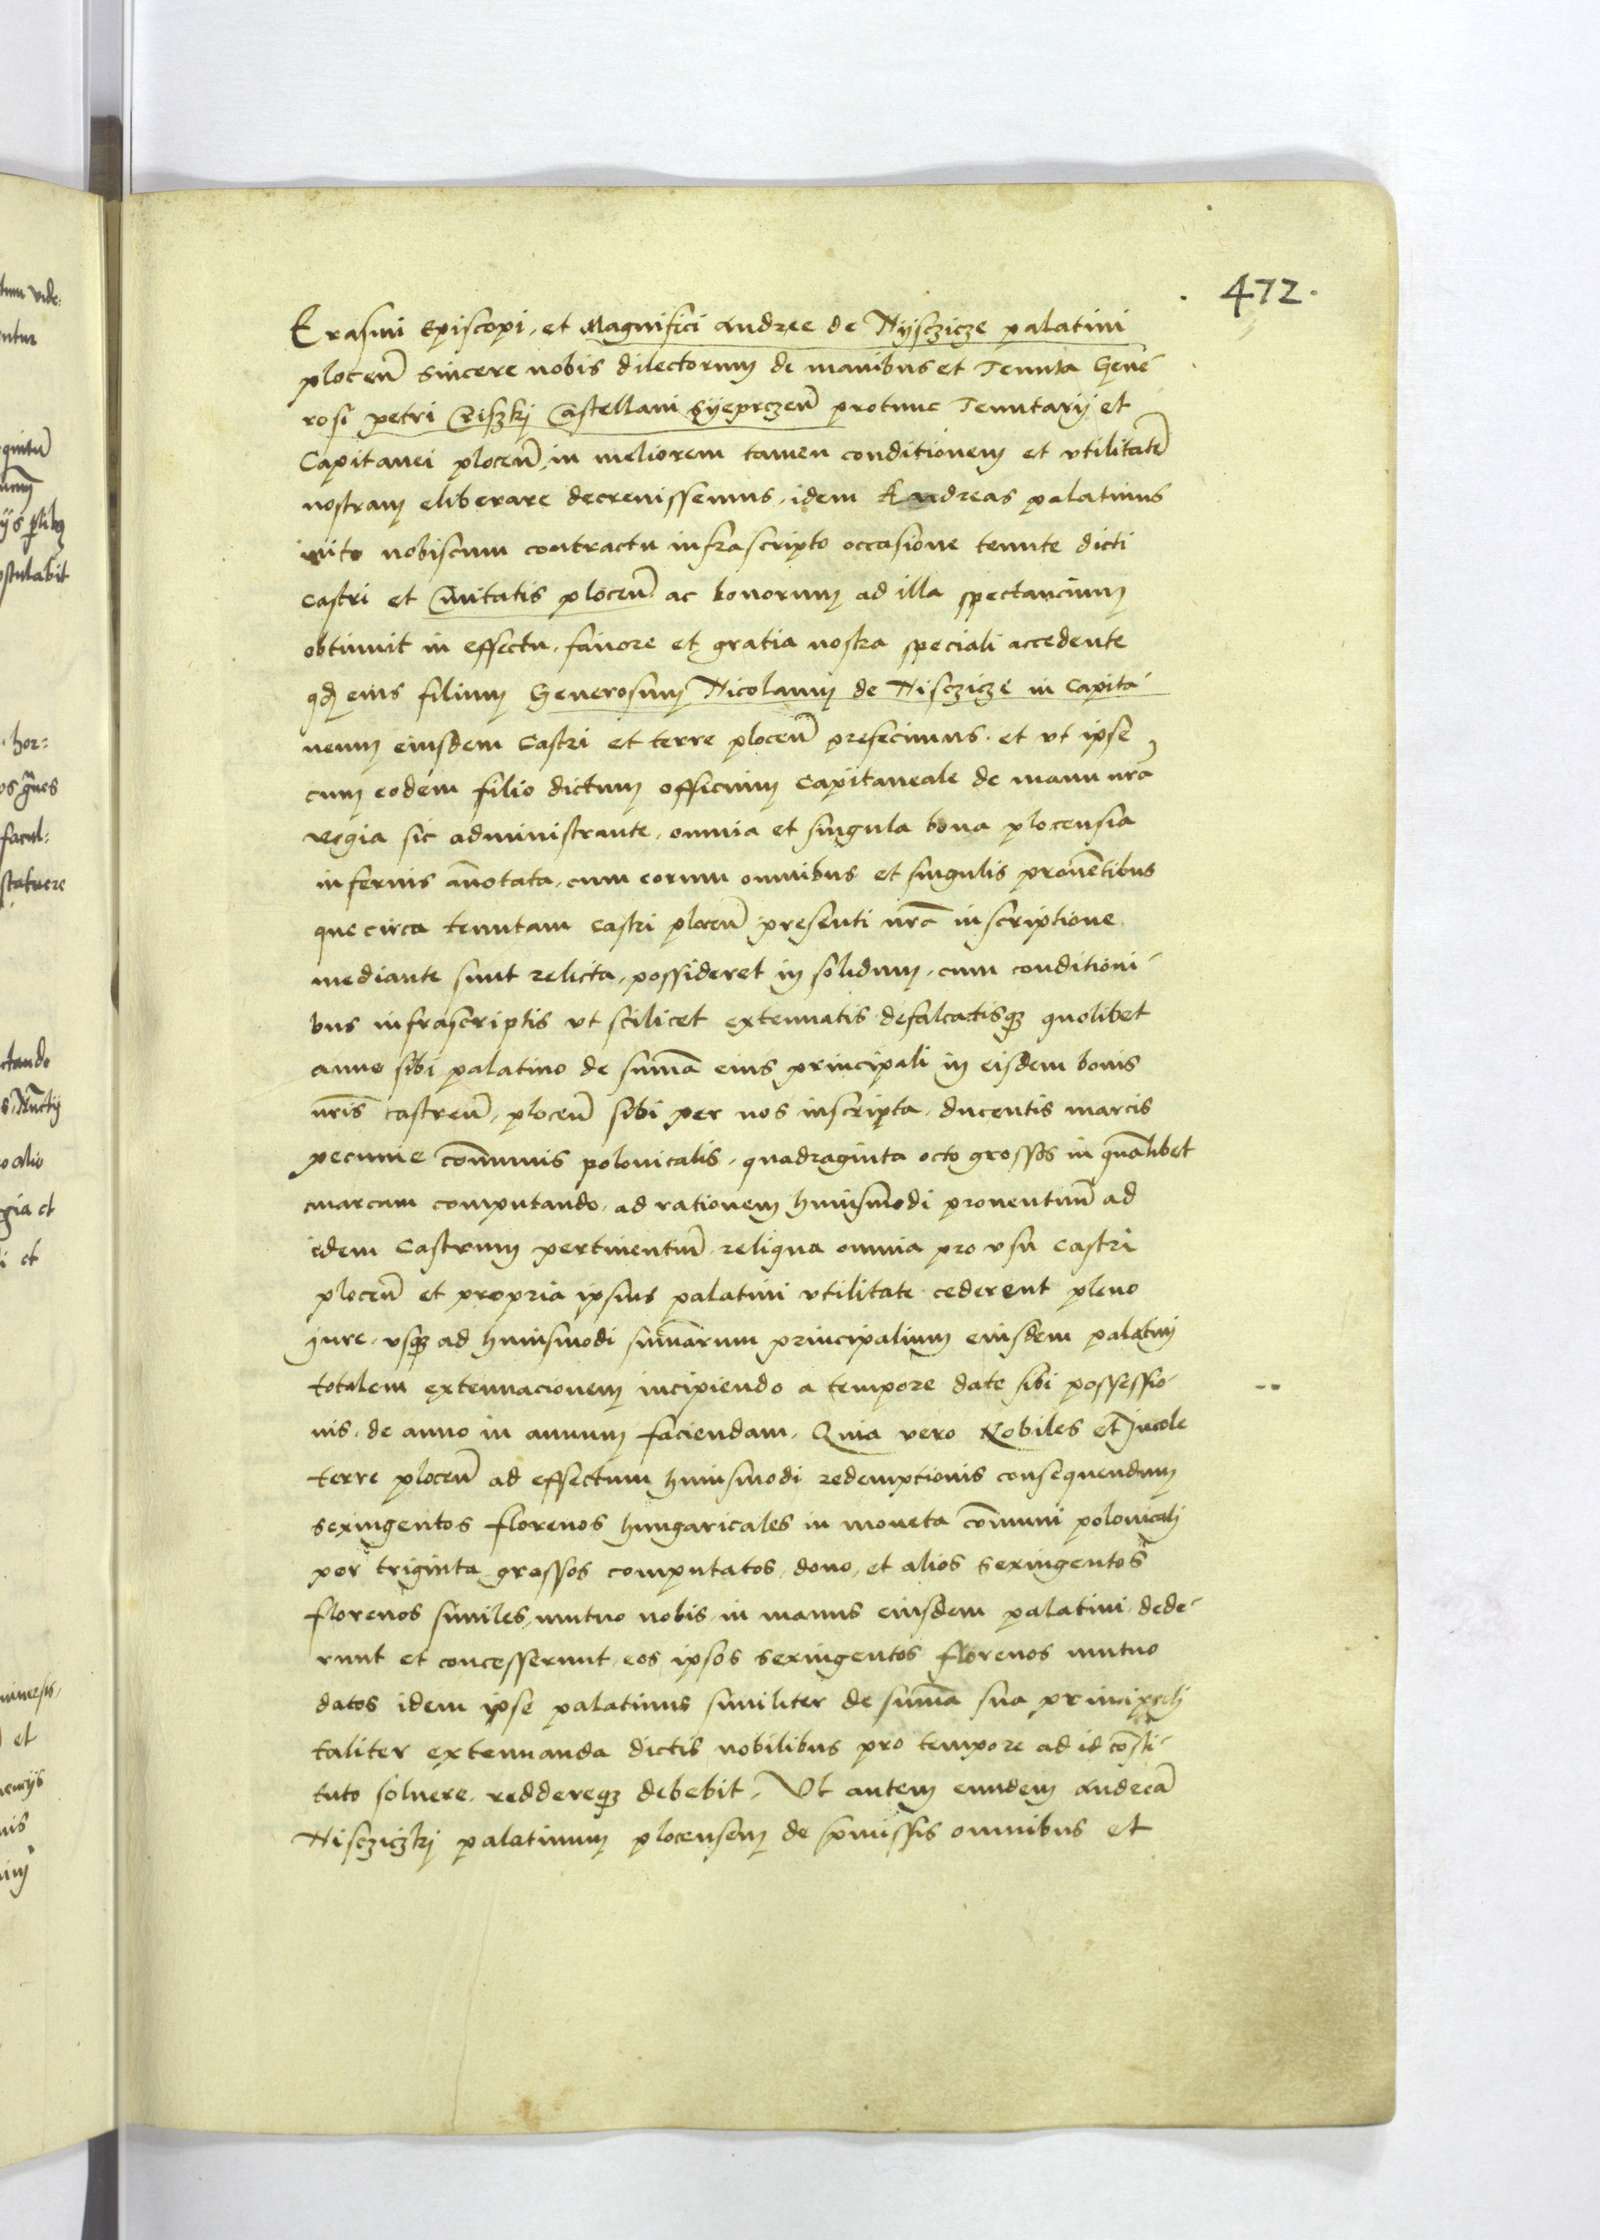 472.
Erasmi Episcopi, et Magnifici Andree de Nijsczicze palatini
plocen̄ sincere nobis dilectorum de manibus et Tenuta Gene-
rosi petri Criszkj Castellani Syeprczen̄ protunc Tenutarij et
Capitanei plocen̄, in meliorem tamen conditionem et vtilitatē
nostram eliberare decrevissemus, idem Andreas palatinus
inito nobiscum contractu infrascripto occasione tenute dicti
castri et Civitatis plocen̄ ac bonorum ad illa spectancium
obtinuit in effectu, favore et gratia nostra speciali accedente
qđ eius filium Generosum Nicolaum de Nisczicze in Capita-
neum eiusdem Castri et terre plocen̄ prefecimus. et vt ipse
cum eodem filio dictum officium Capitaneale de manu nrā
regia sic administrante, omnia et singula bona plocensia
inferius an̄otata, cum eorum omnibus et singulis provētibus
que circa tenutam castri plocen̄ presenti nrā inscriptione
mediante sunt relicta, possideret in solidum, cum conditioni-
bus infrascriptis vt scilicet extenuatis defalcatisqȝ quolibet
anno sibi palatino de sum̄a eius principali in eisdem bonis
nrīs castren̄, plocen̄ sibi per nos inscripta, ducentis marcis
pecunie com̄unis polonicalis, quadraginta octo grossos in quālibet
marcam computando, ad rationem huiusmodi proventuū ad
idem Castrum pertinentiū reliqua omnia pro vsu castri
plocen̄ et propria ipsius palatini vtilitate cederent pleno
jure, vsqȝ ad huiusmodi sum̄arum principalium eiusdem palatini
totalem extenuacionem incipiendo a tempore date sibi possessio-
nis, de anno in annum faciendam. Quia vero Nobiles et Incole
terre plocen̄ ad effectum huiusmodi redemptionis consequendum
sexingentos florenos hungaricales in moneta com̄uni polonicalj
per triginta grossos computatos, dono, et alios sexingentos
florenos similes, mutuo nobis in manus eiusdem palatini dede-
runt et concesserunt, eos ipsos sexingentos florenos mutuo
datos idem ipse palatinus similiter de sum̄a sua principalj
taliter extenuanda dictis nobilibus pro tempore ad id cōsti-
tuto solvere, reddereqȝ debebit, Vt autem eundem Andreā
Nisczickj palatinum plocensem de p̄missis omnibus et